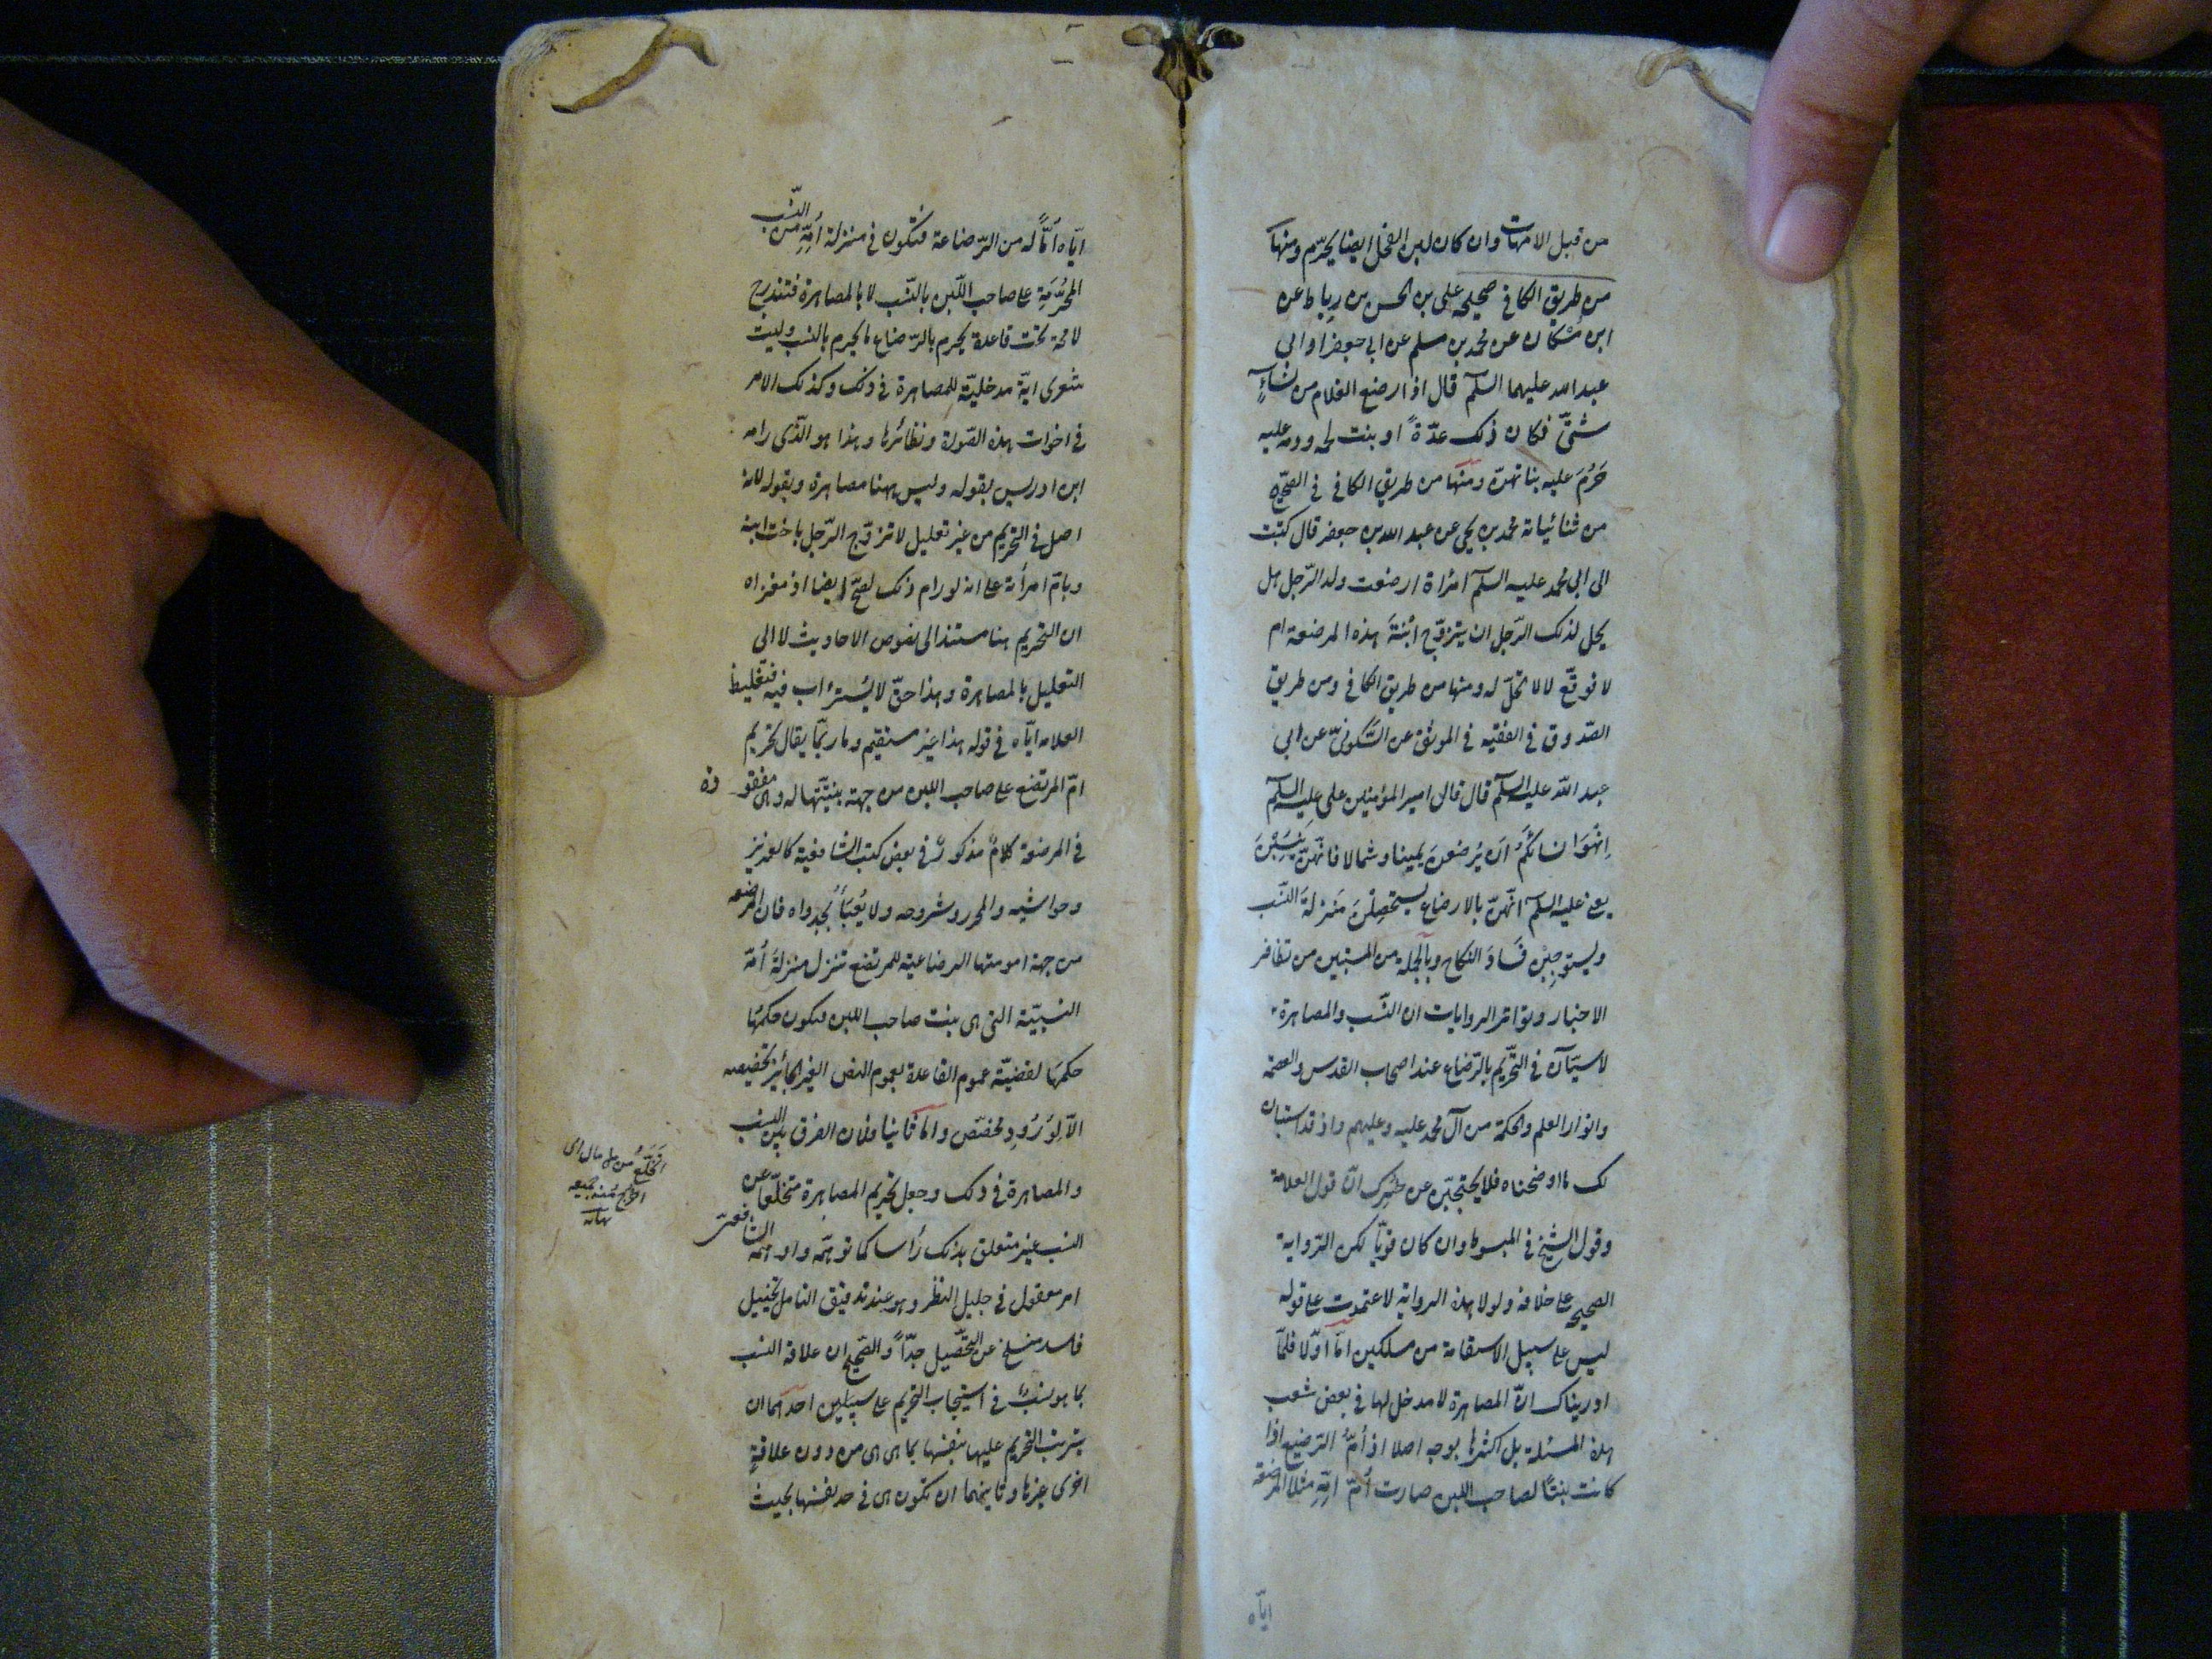 من قبل الامهات وان كان لبن الفحل ايضا يحرّم ومنها
من طريق الكافي صحيحة على بن الحسن بن رباط عن
ابن مسكان عن محمد بن مسلم عن ابي جعفر او ابي
عبد الله عليهما السلم قال اذا رضع الغلام من نساءٍ
شتّى فكان ذلك عدّةً او بنت لحمه ودمه عليه
حَرُمَ عليه بناتهنّ ومنها من طريق الكافي في الصحيح
من ثنائياته محمد بن يحيى عن عبد الله بن جعفر قال كتبت
الى ابي محمد عليه السلم امراة ارضعت ولد الرّجل هل
يحل لذلك الرّجل ان يتزوّج ابنةَ هذه المرضعة ام
لا فوقّع لا لا تحلّ له ومنها من طريق الكافي ومن طريق
الصّدوق في الفقيه في الموثق عن السّكونيّ عن ابي
عبد الله عليه السلم قال قال امير المؤمنين على عليه السلم
اِنهَوا نسائكُم اَن يُرضعنَ يمينا وشمالا فانّهنّ يَنسَيْنَ
يعنى عليه السلم انّهنّ بالارضاع يستحصِلْنَ مَنزلةَ النّسَب
ويستوجِبْن فَسادَ النكاح وبالجملة من المستبين من تظافر
الاخبار وتواتر الروايات ان النّسب والمصاهرة
لاسيّان في التّحريم بالرّضاع عند اصحاب القدس والعصمة
وانوار العلم والحكمة من آل محمد عليه وعليهم واذ قد استبان
لك ما اوضحناه فلا يحتجبّن عن انّ قول العلامة
وقول الشيخ في المبسوط وان كان قويّا لكن الرّواية
الصحيحة على خلافه ولولا هذه الرواية لاعتمدت على قوله
ليس على سبيل الاستقامة من مسلكين امّا اوّلا فلمّا
اوريناك انّ المصاهرة لا مدخل لها في بعض شعب
هذه المسئلة بل اكثرها بوجه اصلا اذ أمّ الرّضيع اذا
كانت بنتًا لصاحب اللبن صارت أمّ مثلا المرضعة
ايّاه
ايّاه أمًّا له من الرّضاعة فتكون في منزلة أمّهِ من النّسب
المحرَّمَةِ على صاحب اللّبن بالنّسب لا بالمصاهرة فتندرج
لا محة تحت قاعدة يحرم بالرّضاع ما يحرم بالنسب وليت
شعرى اية مدخليّة للمصاهرة في ذلك وكذلك الامر
في اخوات هذه الصّورة ونظائرها وهذا هو الّذى رامه
ابن ادريس بقوله وليس ههنا مصاهرة وبقوله لانه
اصل في التحريم من غير تعليل لا تزوّج الرّجل باخت ابنه
وبامّ امرأته على انه لو رام ذلك لصحّ ايضا اذ مغزاه
ان التحريم هنا مستند الى نصوص الاحاديث لا الى
التعليل بالمصاهرة وهذا حقّ لا يُسترأب فيه فتغليط
العلامه ايّاه في قوله هذا غير مستقيم وما ربّما يقال تحريم
امّ المرتضع على صاحب اللبن من جهة بنتيّتها له وهى مفقودة
في المرضعة كلامٌ مذكورٌ في بعض كتب الشافعية كالعزيز
وحواشيه والمحرر وشروحه ولا يُعبَأُ بجدواه فان المرضعه
من جهة امومتها الرضاعية للمرتضع تنزل منزلةَ أمّه
النسبيّة التى هى بنت صاحب اللبن فيكون حكمها
حكمَها لقضيّة عموم القاعدة بعموم النص الغير الجائز تخصيصه
الّا لِوُرُودِ مخصّص واما ثانيا فلان الفرق بين النسب
والمصاهرة في ذلك وجعل تحريم المصاهرة متخلّعا عن
النسب غير متعلق بذلك رأسا كما توهّمه واوهمه الشافعىّ
امر معقول في جليل النظر وهو عند تدقيق التامل تخييل
فاسد منسلخ عن التحصّيل جدّاً والصّحيح ان علاقة النسب
بما هو نسَبٌ في استيجاب التحريم على سبيلين احدهما ان
يترتب التحريم عليها بنفسها بما هى هى من دون علاقةٍ
اخرى غيرها وثانيهما ان تكون هى في حد نفسها بحيث
من مال اى
منه جميعه
نهايه